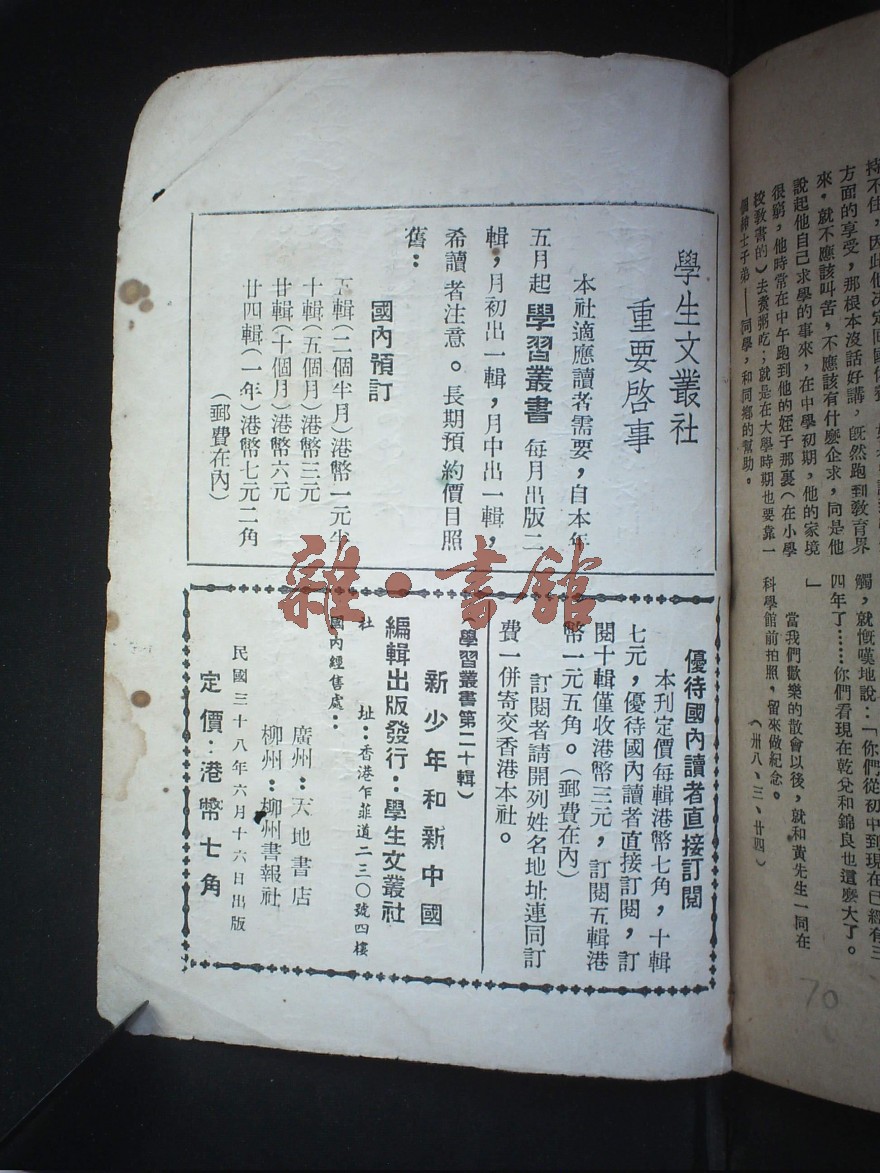 持不住，因此他決定回國休養
方面的享受，那根本沒話好講，旣然跑到敎育界
來，就不應該叫苦，不應該有什麽企求，同是他
說起他自己求學的事來，在中學初期，他的家境
很窮，他時常在中午跑到他的姪子那裏（在小學
校敎書的）去煑粥吃；就是在大學時期也要靠一
個紳士子弟——同學，和同鄉的幫助。
觸，就慨嘆地說：「你們從初中到現在已經有三
四年了……你們看現在乾兌和錦良也這麽大了。
」
當我們歡樂的散會以後，就和黃先生一同在
科學館前拍照，留來做紀念。
（卅八、三、廿四）
70
學生文叢社
重要啓事
本社適應讀者需要，自本年
五月起學習叢書每月出版二
輯，月初出一輯，月中出一輯，
希讀者注意。長期預約價目照
舊：
國內預訂
五輯（二個半月）港幣一元半
十輯（五個月）港幣三元
廿輯（十個月）港幣六元
廿四輯（一年）港幣七元二角
（郵費在內）
優待國內讀者直接訂閱
本刊定價每輯港幣七角，十輯
七元，優待國內讀者直接訂閱，訂
閱十輯僅收港幣三元，訂閱五輯港
幣一元五角。（郵費在內）
訂閱者請開列姓名地址連同訂
費一併寄交香港本社。
（學習叢書第二十輯）
新少年和新中國
編輯出版發行：學生文叢社
社址：香港乍菲道二三〇號四樓
國內經售處：
廣州：天地書店
柳州：柳州書報社
民國三十八年六月十六日出版
定價：港幣七角
雜·書館